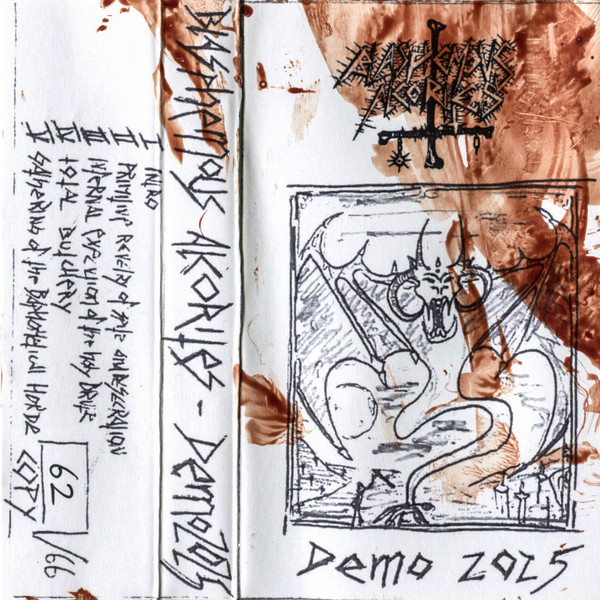 BLASPHEMOUS AKORITES
Demo 2025
BlASphemous AKORITES - Demo 2025
I INTRO
II PRIMITIVE REVELRY of AND DESECRATION
III INFERNAL EXECUTION of the HOLY
IV totAl butchery
V GATHERING of the BAPHOMETICAL HORDE
62 /66
COPY